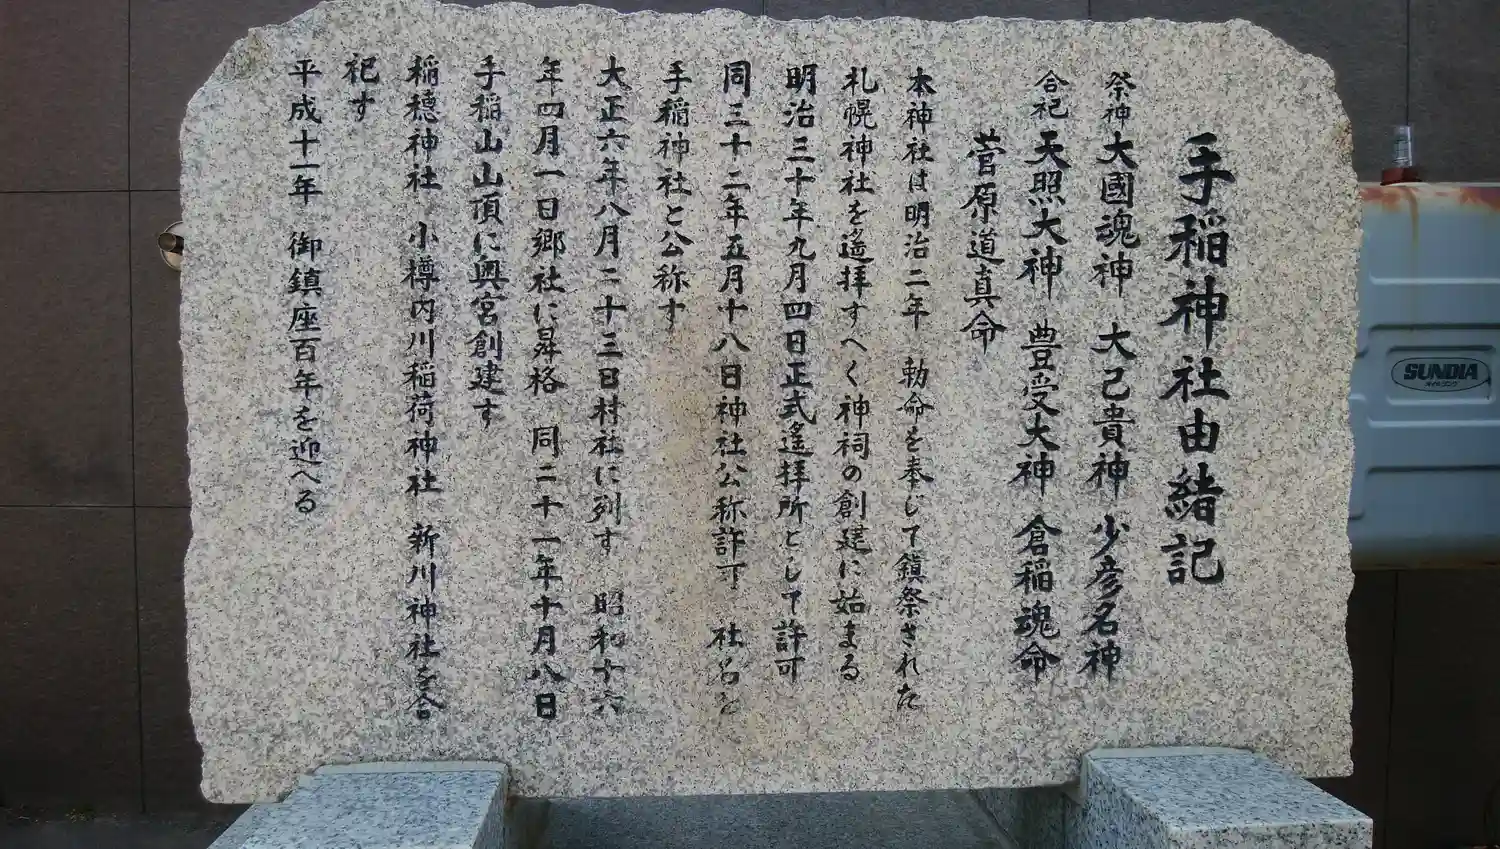 手稲神社由緒記
祭神 大國魂神 大己貴神 少彦名神
合祀 天照大神 豊受大神 倉稲魂命
菅原道真命
本神社は明治二年 勅命を奉じて鎮祭された
札幌神社を遙拝すへく神祠の創建に始まる
明治三十年九月四日正式遙拝所として許可
同三十二年五月十八日神社公称許可 社名を
手稲神社と公称す
大正六年八月二十三日村社に列す 昭和十六
年四月一日郷社に昇格 同二十一年十月八日
手稲山山頂に奥宮創建す
稲穂神社 小樽内川稲荷神社 新川神社を合
祀す
平成十一年 御鎮座百年を迎へる
SUNDIA